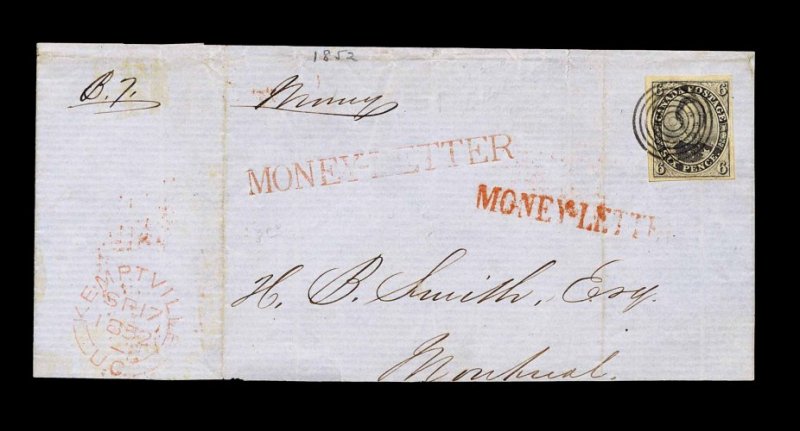 1852
B. 7. Money
6 CANADA POSTAGE 6
6 SIX PENCE 6
MONEY-LETTER
MONEY-LETTE
KEMPTVILLE
SP 17
1852
U.C
H. B. Smith, Esq.
Montreal.